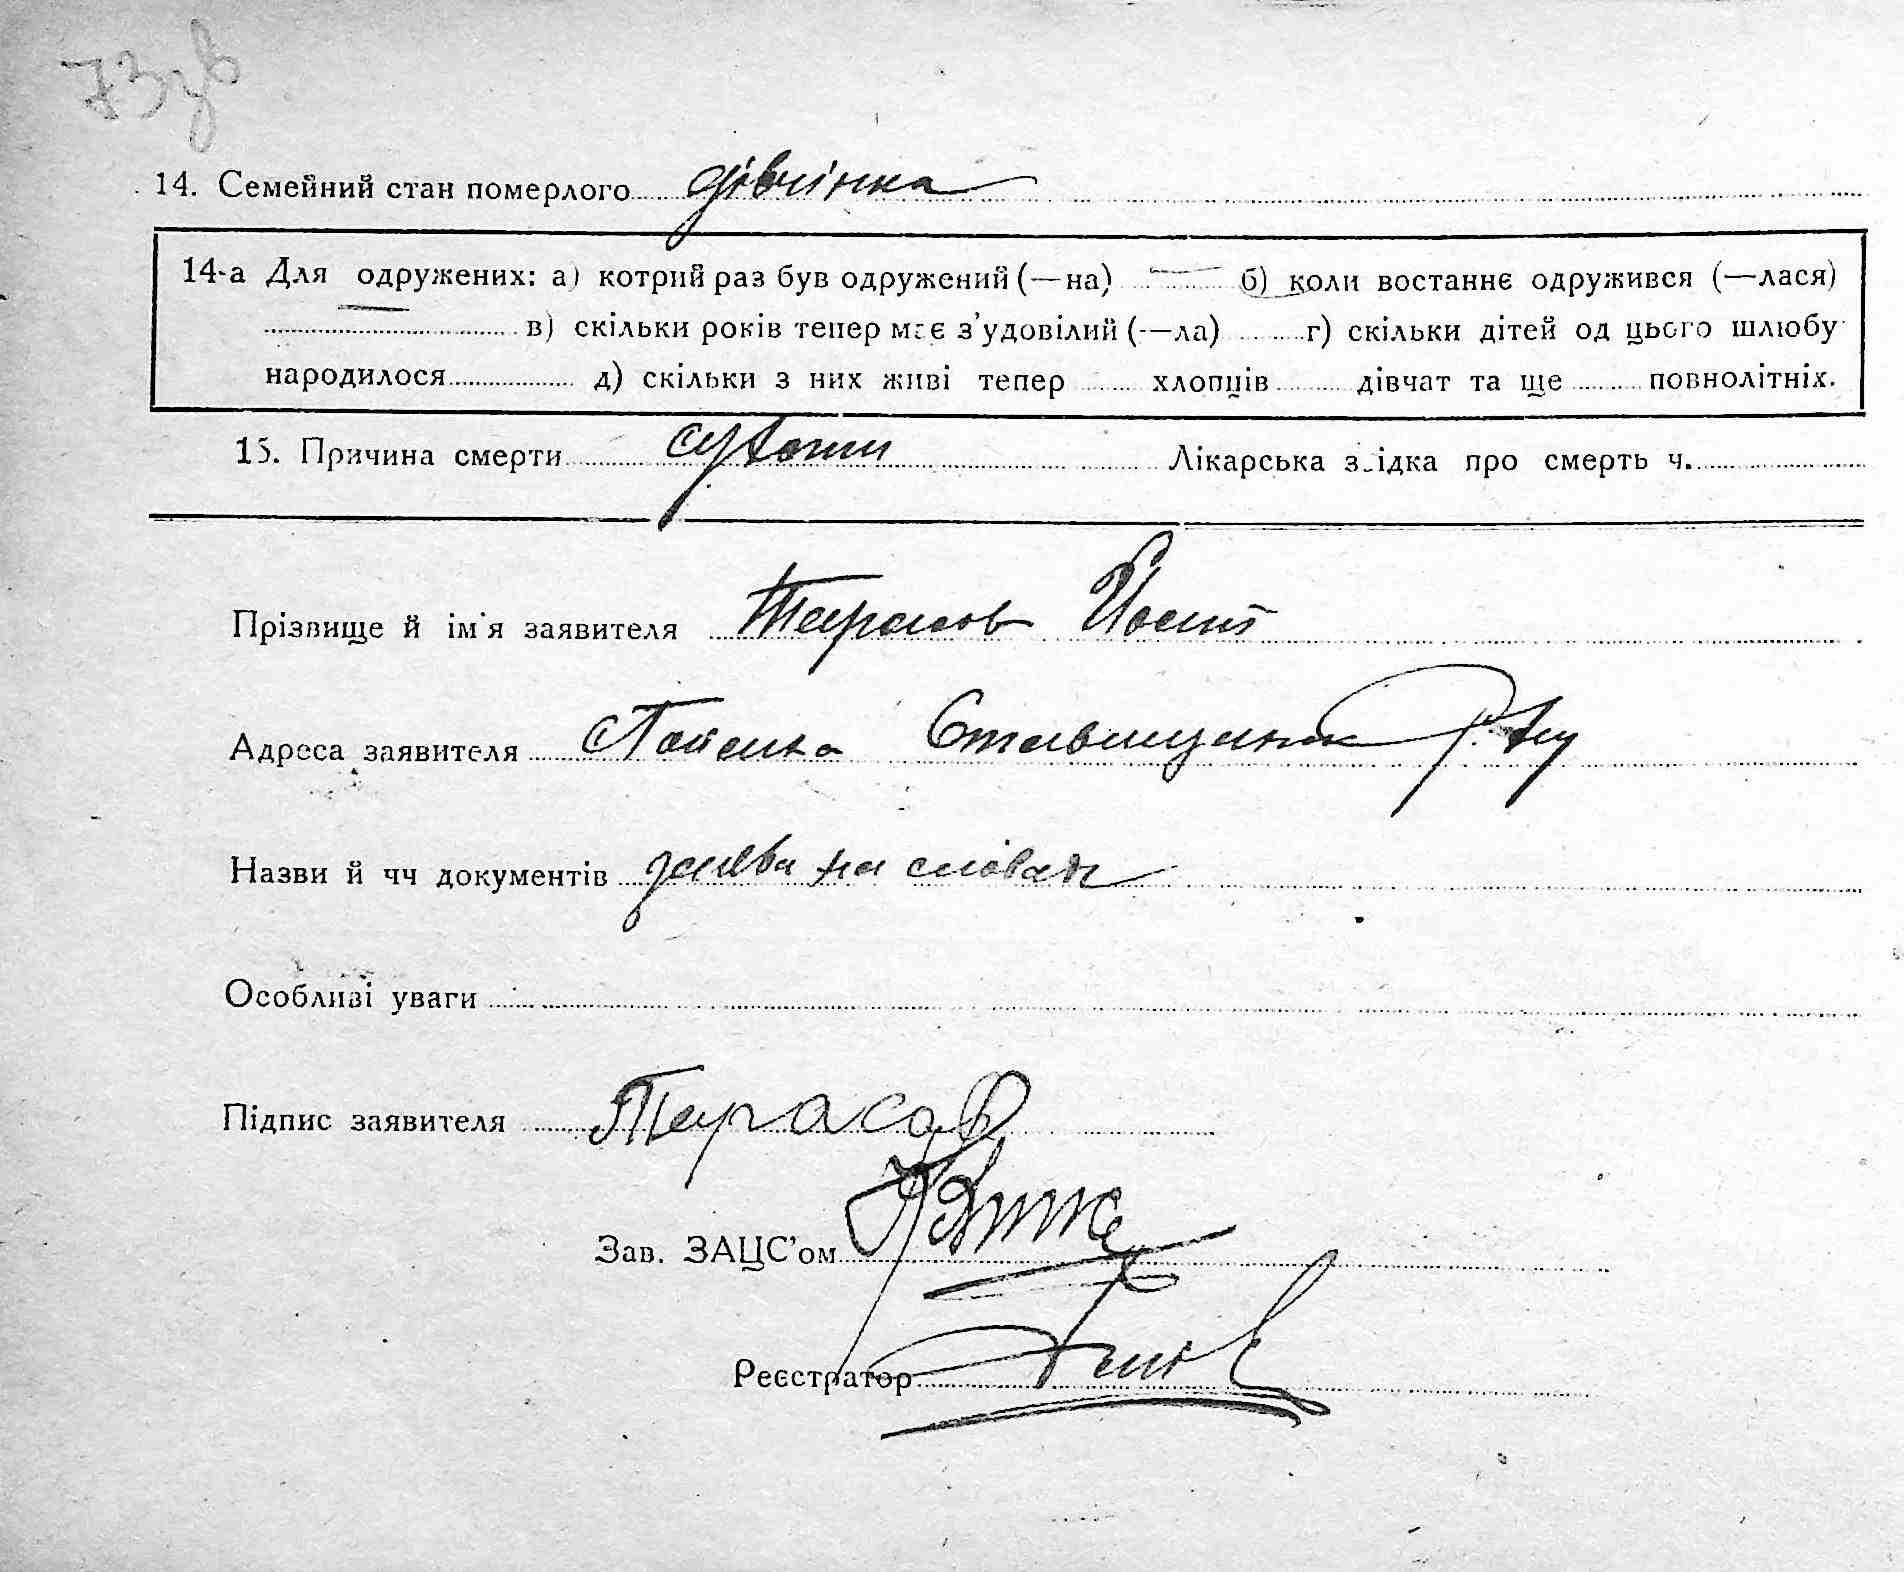 73зв
14. Семейний стан померлого дівчінка
14-а Для одружених: а) котрий раз був одружений (—на) б) коли востаннє одружився (—лася)
в) скільки років тепер має з'удовілий (—ла) г) скільки дітей од цього шлюбу
народилося д) скільки з них живі тепер хлопців дівчат та ще повнолітніх.
15. Причина смерти Лікарська звідка про смерть ч.
Прізвище й ім'я заявителя Тарасов Йосип
Адреса заявителя Ставищанськ
Назви й чч документів заява на словах
Особливі уваги
Підпис заявителя Тарасов
Зав. ЗАЦС'ом
Реєстратор